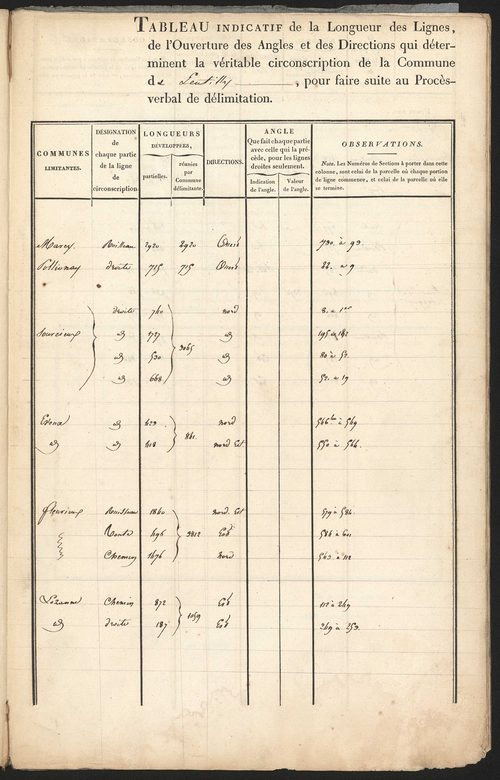 TABLEAU INDICATIF de la Longueur des Lignes,
de l'Ouverture des Angles et des Directions qui déter-
minent la véritable circonscription de la Commune
de Lentilly, pour faire suite au Procès-
verbal de délimitation.
COMMUNES LIMITANTES.
DÉSIGNATION de chaque partie de la ligne de circonscription.
LONGUEURS DÉVELOPPÉES,
partielles.
réunies par Commune délimitante.
DIRECTIONS.
ANGLE
Que fait chaque partie avec celle qui la précède, pour les lignes droites seulement.
Indication de l'angle.
Valeur de l'angle.
OBSERVATIONS.
NOTA. Les Numéros de Sections à porter dans cette colonne, sont celui de la parcelle où chaque portion de ligne commence, et celui de la parcelle où elle se termine.
Marcy Ruisseau 2920 2920 Ouest 730. à 93.
Pollionay droite 715 715 Ouest 22. à 9
droite 760 nord 8. à 1er
Sourcieux id 737 3065 id
id 530 id 80 à 52.
id 668 id 52. à 19
Eveux id 623 nord 566 bis à 569
id id 818 861. nord Est 550 à 566.
fleurieux Ruisseau 1860 nord. Est 579 à 586.
Route 696 3812 Est 586 à 601
Chemin 1676 nord 563 à 112
Lozanne Chemin 872 1059 Est 112 à 269
id droite 187 Est 269 à 259.